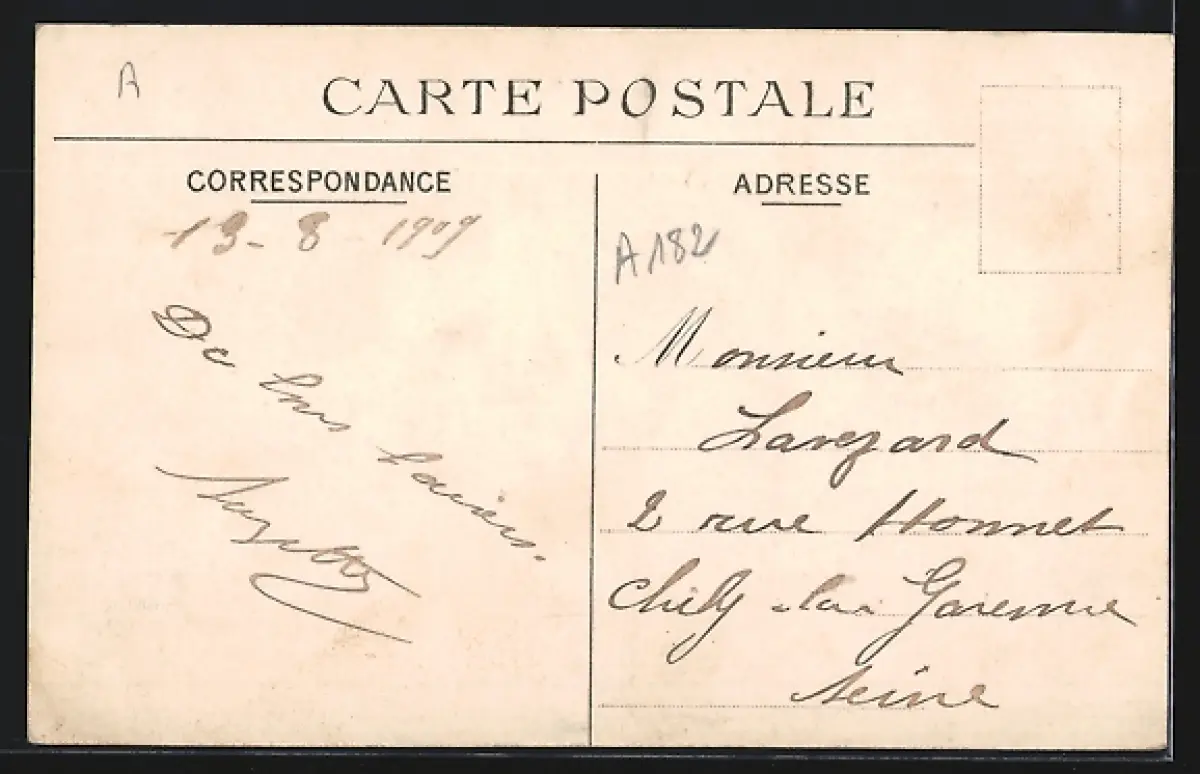 A
CARTE POSTALE
CORRESPONDANCE
ADRESSE
13-8-1909
A182
De bons baisers.
Monsieur
Lavezard
2 rue Honnet
la Garenne
Seine